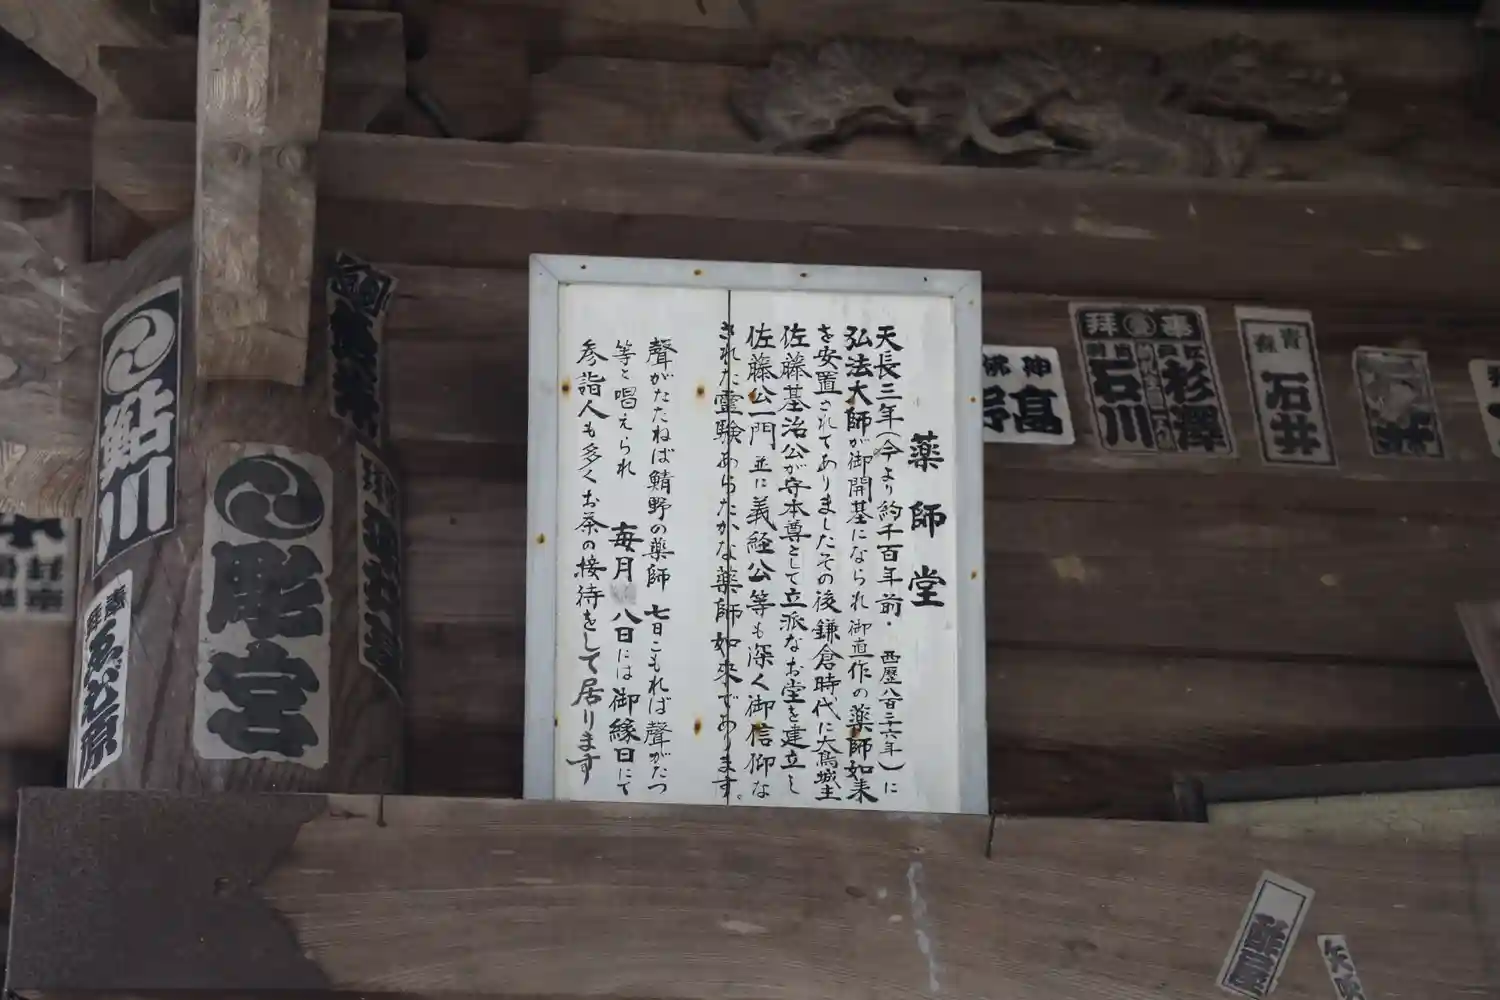 薬師堂
天長三年(今より約千百年前・西歴八百二六年)に
弘法大師が御開基になられ御直作の薬師如来
を安置されてありましたその後鎌倉時代に大鳥城主
佐藤基治公が守本尊として立派なお堂を建立し
佐藤公一門並に義経公等も深く御信仰な
された霊験あらたかな薬師如来であります。
聲がたたねば鯖野の薬師 七日こもれば聲がたつ
等と唱えられ 毎月八日には御縁日にて
参詣人も多くお茶の接待をして居ります
鮎川
彫宮
神佛
高
拝
江戸
杉澤
石川
青森
石井